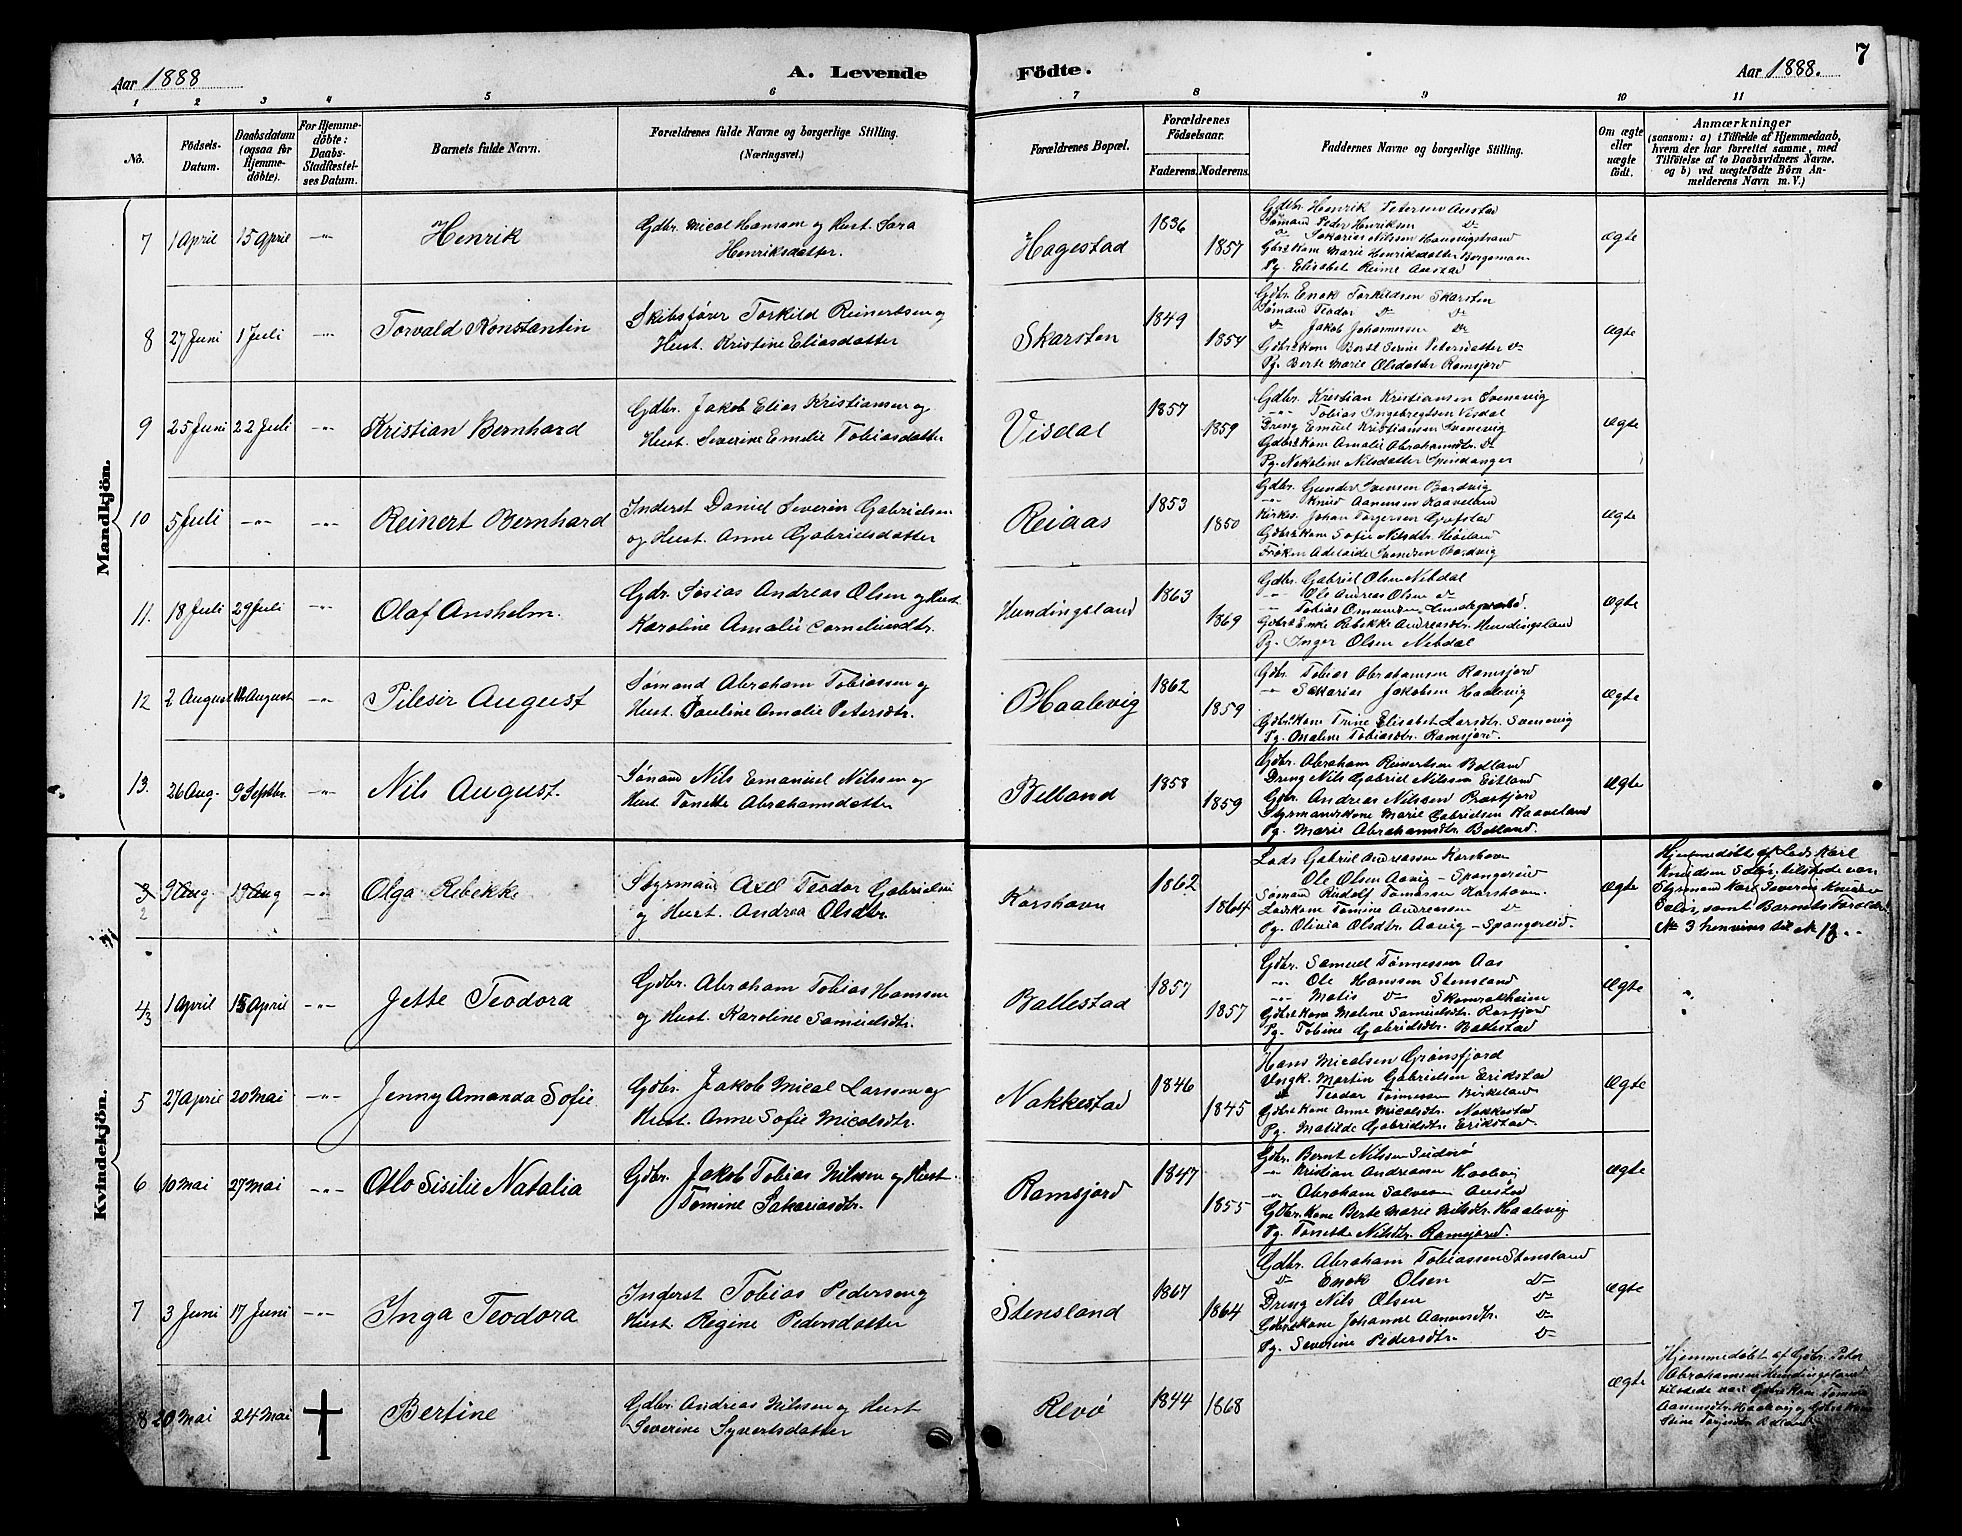 Aar 1888
A. Levende
Födte.
Aar 1888.
7
1 2 3 4 5 6 7 8 9 10 11
No.
Födsels-Datum.
Daabsdatum (ogsaa for Hjemme-döbte).
For Hjemme-döbte: Daabs-Stadfæstelses Datum.
Barnets fulde Navn.
Forældrenes fulde Navne og borgerlige Stilling.
(Næringsvei.)
Forældrenes Bopæl.
Forældrenes Födselsaar.
Faderens. Moderens.
Faddernes Navne og borgerlige Stilling.
Om ægte eller uægte födt.
Anmærkninger
(saasom: a) i Tilfælde af Hjemmedaab,
hvem der har forrettet samme, med
Tilföielse af to Daabsvidners Navne.
og b) ved uægtefödte Börn An-
melderens Navn m. V.)
Mandkjön.
7 1 April 15 April -"- Henrik
Gdbr. Mical Hansen og Hust. Sara
Henriksdatter.
Hagestad 1836 1857
Gdbr. Henrik Petersen Austad
Sømand Peder Henriksen Do
Do Sakarias Nilssen
Gbrs Kone Marie Henriksdatter
Pg. Elisabet Reime Austad
Ægte
8 27 Juni 1 Juli -"- Torvald Konstantin
Skibsfører Torkild Reinertsen og
Hust. Kristine Eliasdatter
Skarsten 1849 1854
Gdbr. Enok Torkildsen Skarsten
Sømand Teodor Do Do
Do Jakob Johannessen Do
Gdbrs kone Serine Petersdatter Do
Pg. Berte Marie Olsdatter Ramsjord
Ægte
9 25 Juni 22 Juli -"- Kristian Bernhard
Gdbr. Jakob Elias Kristiansen og
Hust. Severine Emelie Tobiasdatter
Visdal 1857 1859
Gdbr. Kristian Kristiansen Svenevig
-"- Tobias Ingebregtsen Visdal
Dreng Emuel Kristiansen Svenevig
Gdbrs kone Amalie Abrahamsdtr. Do
Pg. Nakoline Nilsdatter Spindanger
Ægte
10 5 Juli -"- -"- Reinert Bernhard
Inderst Daniel Severin Gabrielsen
og Hust. Anne Gabrielsdatter
Reiaas 1853 1850
Gdbr. Gunder Svensen Bordvig
-"- Knud Aanensen Kaaveland
Kirkes. Johan Torgersen
Gdbrs kone Sofie Nilsdtr. Høiland
Frøken Adelaide Svendsen Bordvig
Ægte
11. 18 Juli 29 Juli -"- Olaf Ansholm.
Gdr. Josias Andreas Olsen og Hust.
Karoline Amalie Corneliusdtr.
Hundingsland 1863 1869
Gdbr. Gabriel Olsen Nibdal
-"- Ole Andreas Olsen do
-"- Tobias
Gdbrs Enke Rebekke Andreasdtr. Hundingsland
Pg. Inger Olsen Nibdal
Ægte
12 2 August 12 August -"- Pilesir August
Sømand Abraham Tobiassen og
Hust. Pauline Amalie Petersdtr.
Haalevig 1862 1859
Gdbr. Tobias Abrahamsen Ramsjord
-"- Sakarias Jakobsen Haalevig
Gdbrs Kone Trine Elisabet Larsdtr. Svenevig
Pg. Maline Tobiasdtr. Ramsjord.
Ægte
13. 26 Aug. 9 Septbr. -"- Nils August.
Sømand Nils Emanuel Nilssen og
Hust. Tonette Abrahamsdatter
Belland 1858 1859
Gdbr. Abraham Reinertsen Belland
Dreng Nils Gabriel Nilssen Eitland
Gdbr. Andreas Nilssen
Styrmandskone Marie Gabrielsen Kaaveland
Pg. Marie Abrahamsdtr. Belland.
Ægte
Kvindekjön.
3 2 9 Aug 19 Aug -"- Olga Rebekke
Styrmand Axel Teodor Gabrielsen
og Hust. Andrea Olsdtr.
Korshavn 1862 1864
Lods Gabriel Andreassen Korshavn
Ole Olsen Aavig - Spangereid
Sømand Rudolf Tønnessen Korshavn.
Lodskone Tomine Andreassen Do
Pg. Olivia Olsdtr. Aavig - Spangereid.
Ægte
Hjemmedøbt af Lods Karl
Knudsen Selør, tilstede var
Styrmand Karl Severin Knudsen
Selør, samt Barnets Forældre
No 3 henvises til No
4 3 1 April 15 April -"- Jette Teodora
Gdbr. Abraham Tobias Hansen
og Hust. Karoline Samuelsdtr.
Ballestad 1857 1857
Gdbr. Samuel Tønnessen Aas
-"- Ole Hanssen Stensland
-"- Matis Do
Gdbrs kone Maline Samuelsdtr. Rosfjord
Pg. Tobine Gabrielsdtr. Ballestad
Ægte
5 27 April 20 Mai -"- Jenny Amanda Sofie.
Gdbr. Jakob Mical Larssen og
Hust. Anne Sofie Micalsdtr.
Nakkestad 1846 1845
Hans Micalsen Grønsfjord
Ungk. Martin Gabrielsen Erikstad
Do Teodor Tønnessen Birkeland
Gdbrs Kone Anne Micalsdtr. Nakkestad
Pg. Matilde Gabrielsdtr. Erikstad.
Ægte
6 10 Mai 27 Mai -"- Otlo Sisilie Natalia
Gdbr. Jakob Tobias Nilssen og Hust.
Tomine Sakariasdtr.
Ramsjord 1847 1855
Gdbr. Bernt Nilssen
-"- Kristian Andreassen Haalevig
-"- Abraham Salvesen Austad
Gdbr. Kone Berte Marie Nilsdtr. Haalevig
Pg. Tonette Nilsdtr. Ramsjord.
Ægte
7 3 Juni 17 Juni -"- Inga Teodora
Inderst Tobias Pedersen og
Hust. Regine Pedersdatter
Stensland 1867 1864
Gdbr. Abraham Tobiassen Stensland
Do Enok Olsen Do
Dreng Nils Olsen Do
Gdbrs kone Johanne Aanensdtr. Do
Pg. Severine Pedersdtr. Do
Ægte
8 20 Mai 24 Mai Bertine
Gdbr. Andreas Nilssen og Hust
Severine Syvertsdatter
Revø 1844 1868
Ægte
Hjemmedøbt af Gdbr. Peter
Abrahamsen Hundingsland
tilstede var Gdbrs Kone Tomine
Aanensdtr. Haalevig og Gdbrs Kone
Stine